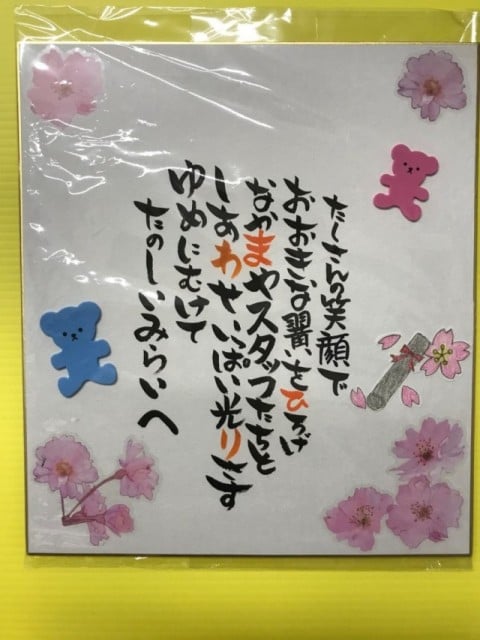 たくさんの笑顔で
おおきな翼いをひろげ
なかまやスタッフたちと
しあわせいっぱい光ります
ゆめにむけて
たのしいみらいへ